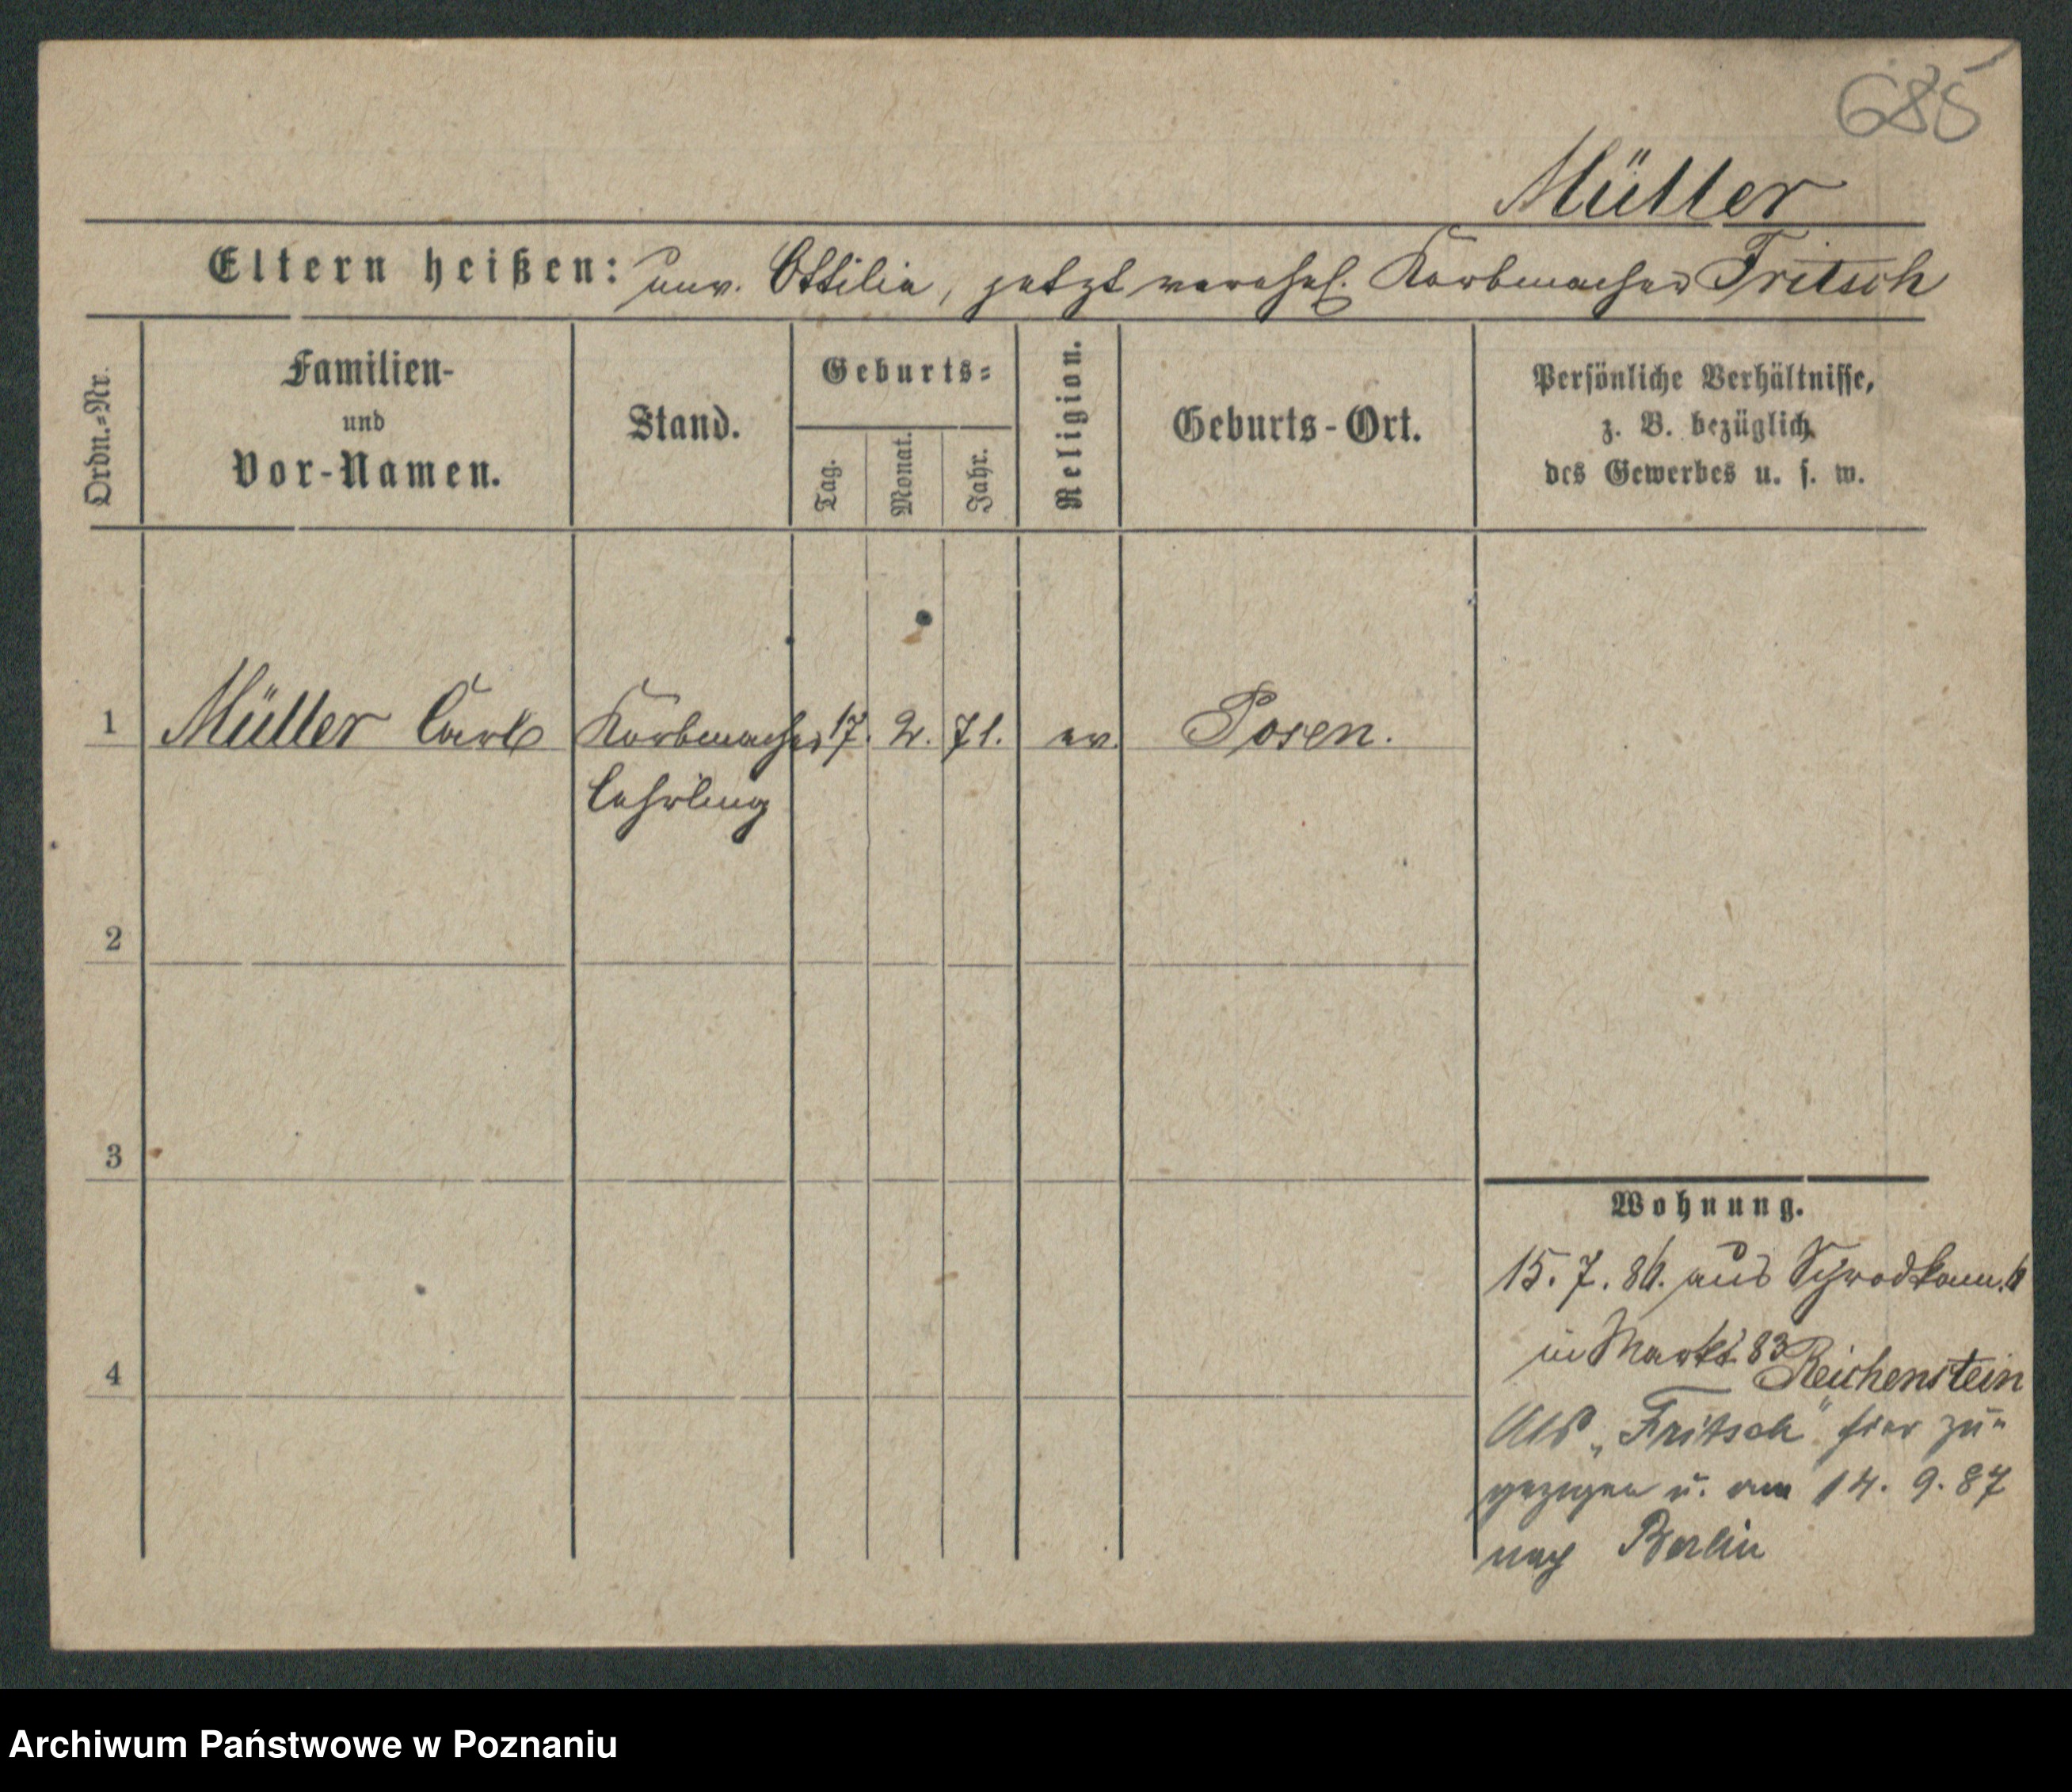 685
Müller
Eltern heißen: unv. Ottilie, jetzt verehel. Korbmacher Fritsch
Ordn.-Nr.
Familien-
und
Vor-Namen.
Stand.
Geburts-
Tag.
Monat.
Jahr.
Religion.
Geburts-Ort.
Persönliche Verhältnisse,
z. B. bezüglich
des Gewerbes u. s. w.
1 Müller Carl Korbmacher 17. 2. 71. ev. Posen.
Lehrling
2
3
4
Wohnung.
15. 7. 86. aus
in Markt 83 Reichenstein
Als „Fritsch" hier zu-
gezogen u. am 14. 9. 87
nach Berlin
Archiwum Państwowe w Poznaniu